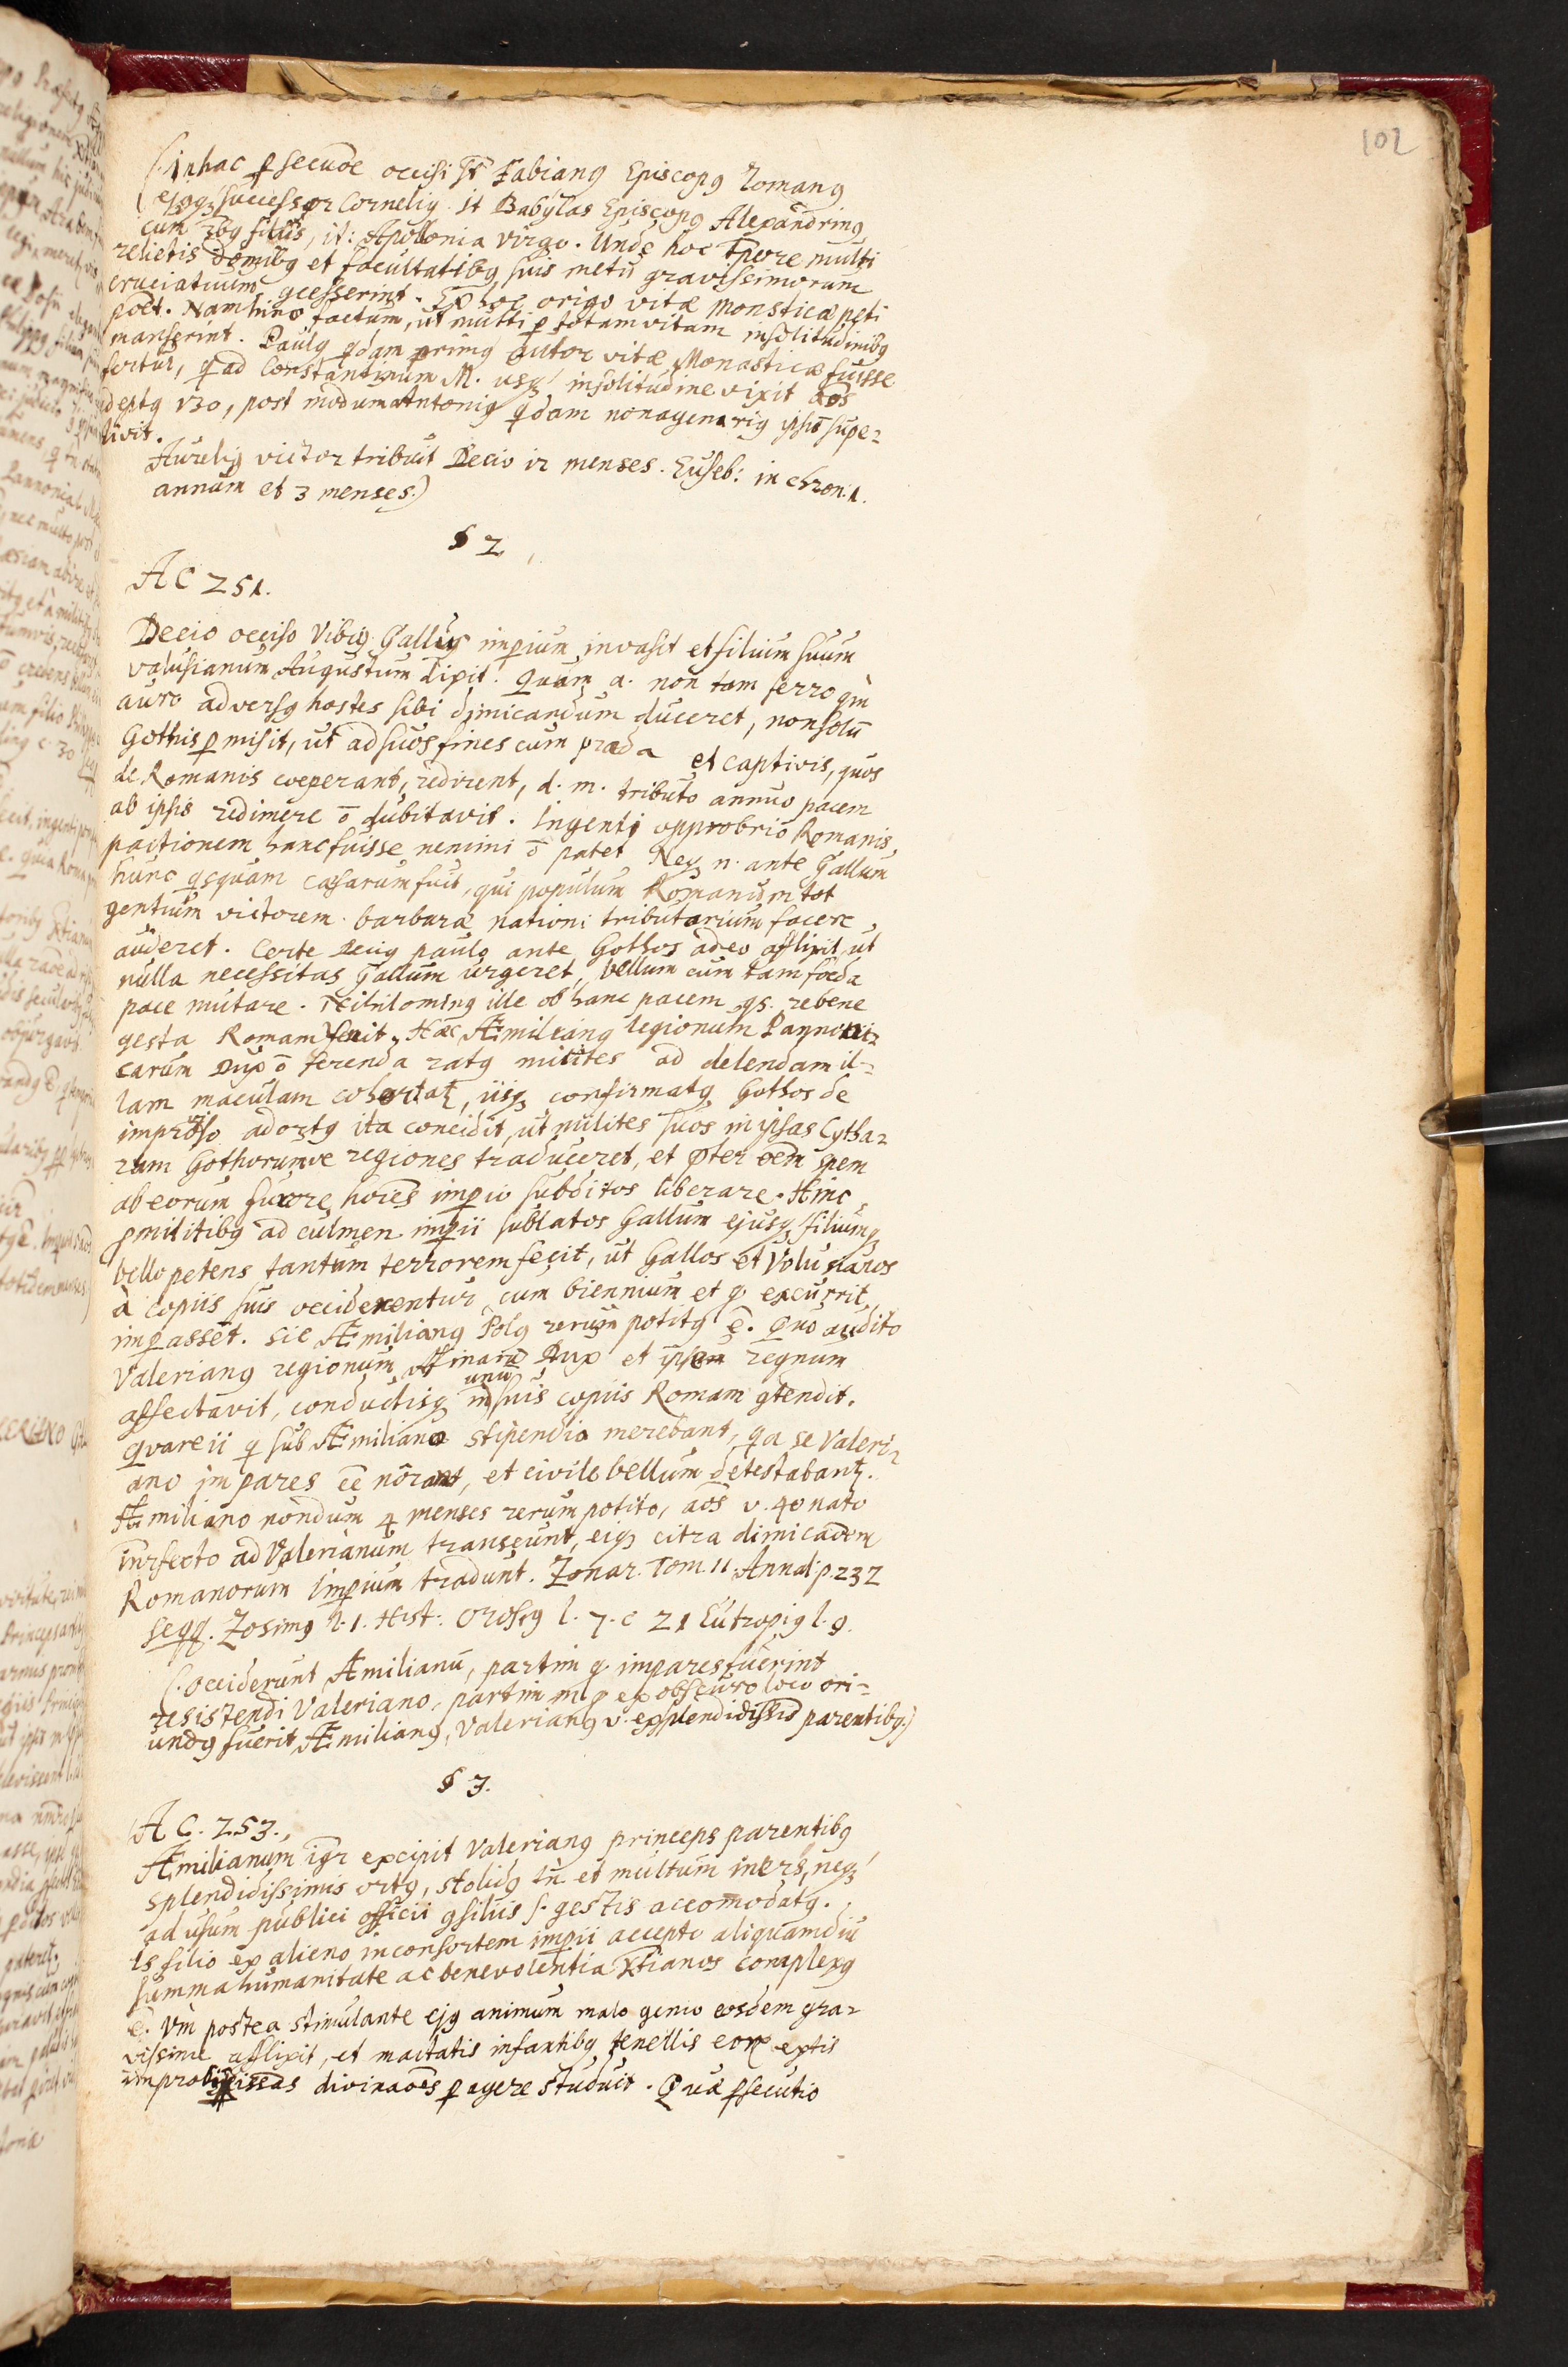 102
(. in hac psecuõe occisi st Fabiang Episcopg Romang
ejqg successor Cornelig. it Babylas Episcopg Alexandring
cum 3bg filiis, it: Apollonia virgo. Unde hoc tpore multi
relictis domibg et facultatibg suis metu gravissimorum
cruciatuum gcesserint. Ex hoc origo vitæ monsticæ peti
pot. Nam hinc factum, ut multi p totam vitam in solitudinibg
manserint. Paulg qdam primg autor vitæ Monasticæ fuisse
fertur, q ad Constantinum M. usq in solitudine vixit aos
deptg 130, post modum Antonig qdam nonagenarig ipsi supe=
tivit.
Aurelig victor tribuit Decio ir menses. Euseb: in chron. 1.
annum et 3 menses.)
§ 2.
A C 251.
Decio occiso Vibig Gallus impium invasit et filium suum
Valusianum Augustum dixit. Quam a. non tam ferro qm
auro adversg hostes sibi dimicandum duceret, non solū
Gothis pmisit, ut ad suos fines cum præda et captivis, quos
de Romanis coeperant, redirent, d. m. tributo annuo pacem
ab ipsis redimere ō dubitavit. Ingenti opprobrio Romanis,
pactionem hanc fuisse nemini ō patet Neq n. ante Gallum
hunc qsquam Cæsarum fuit, qui populum Romanum tot
gentium victorem barbaræ nationi tributarium facere
auderet. Certe Decig paulo ante Gothos adeo afflixit, ut
nulla necessitas Gallum urgeret, bellum cum tam foeda
pace mutare. Nihiloming ille ob hanc pacem qs. re bene
gesta Romam venit. Hæc Æmiliang legionum Pannoni=
carum Dux ō ferenda ratg milites ad delendam il=
lam maculam cohortat, iisq confirmatg Gothos de
improviso adortg ita concidit, ut milites suos in ipsas Cytha=
rum Gothorumve regiones traduceret, et pter oem spem
ab eorum furore hoies impio subditos liberare. Hinc
p militibg ad culmen impii sublatos Gallum ejusq filiumq
bello petens tantum terrorem fecit, ut Gallos et Volusianos
à copiis suis occiderentur cum biennium et q excurrit,
impassēt. Sic Æmiliang Solg rerum potitg ē. Quo audito
Valeriang regionum Dux et ipsum regnum
affectavit, conductisq in unū suis copiis Romam gtendit.
Quare ii q sub Æmiliano stipendia merebant, qa se Valeri=
ano impares ēe nôrant, et civile bellum detestabant.
Æmiliano nondum 4 menses rerum potito, aos v. 40 nato
inrfecto ad Valerianum transeunt, eiq citra dimicaoem
Romanorum Impium tradunt. Zonar. Tom. 11 Annal p. 232
seqq. Zosimg l. 1. Hist. Orosig l. 7. c 21 Eutropig l. 9.
(. Occiderunt Æmilianū, partim q impares fuerint
resistendi Valeriano, partim m q ex obscuro loco ori=
undg fuerit Æmiliang, Valeriang v. ex splendidissis parentibg.)
§ 3.
A C. 253.
Æmilianum igr excipit Valeriang princeps parentibg
splendidissimis ortg, stolidg tn et multum iners, neq
ad usum publici officii gsiliis s. gestis accomodatg.
Is filio ex alieno in consortem impii accepto aliquamdiu
summa humanitate ac benevolentia Xtianos complexg
ē. Vm postea stimulante ejg animum malo genio eosdem gra=
vissime afflixit, et mactatis infantibg tenellis eorx extis
divinaoes pagere studuit. Quæ psecutio